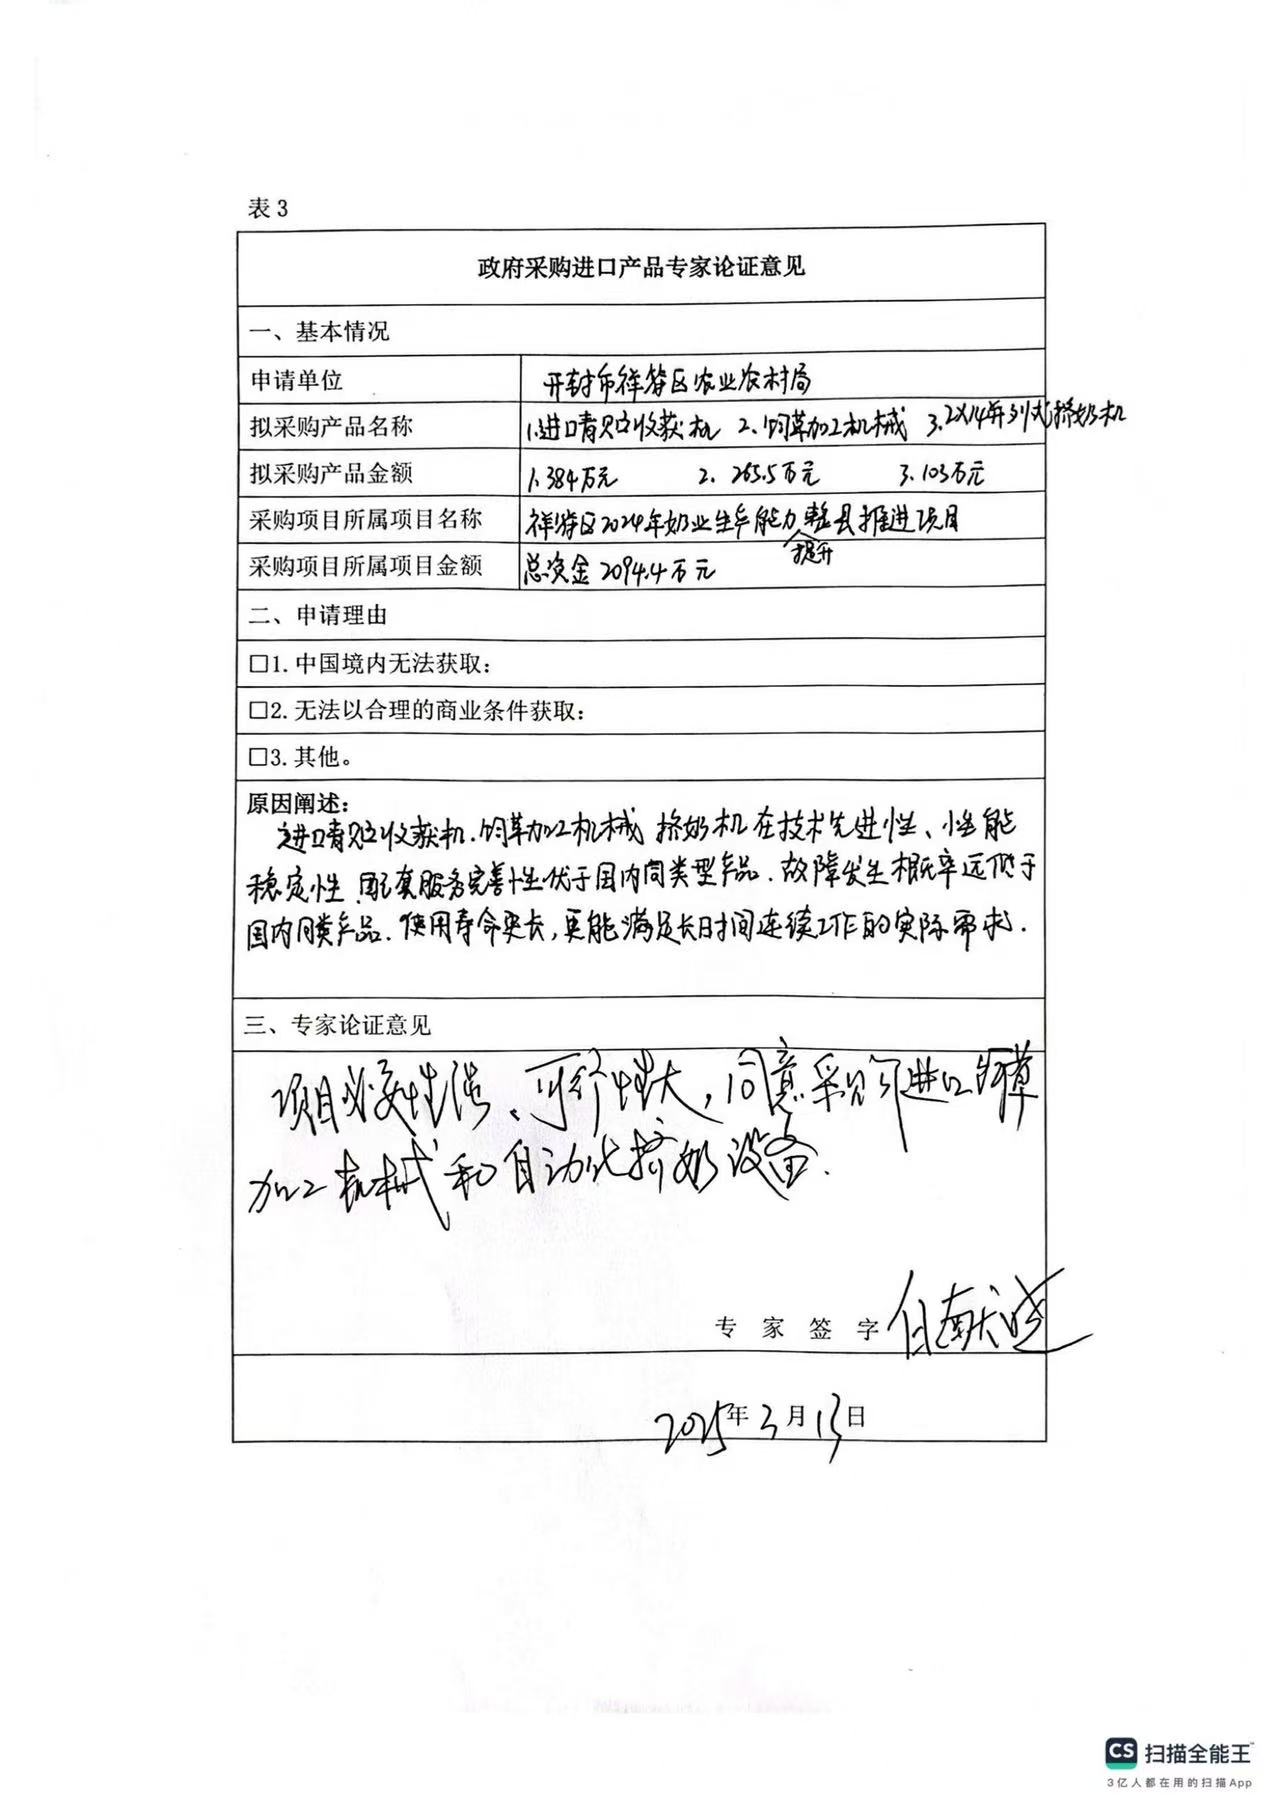 表3
政府采购进口产品专家论证意见
一、基本情况
申请单位 开封市祥符区农业农村局
拟采购产品名称 1.进口青贮收获机 2.饲草加工机械 3.2X14并列式挤奶机
拟采购产品金额 1.384万元 2.265.5万元 3.103万元
采购项目所属项目名称 祥符区2024年奶业生产能力提升整县推进项目
采购项目所属项目金额 总资金2094.4万元
二、申请理由
□1.中国境内无法获取:
□2.无法以合理的商业条件获取:
□3.其他。
原因阐述:
进口青贮收获机.饲草加工机械 挤奶机在技术先进性、性能
稳定性 配套服务完善性优于国内同类型产品.故障发生概率远低于
国内同类产品.使用寿命更长,更能满足长时间连续工作的实际需求.
三、专家论证意见
项目必要性强、可行性大,同意采购进口饲草
加工机械和自动化挤奶设备.
专家签字 白献晓
2025年3月13日
CS 扫描全能王
3亿人都在用的扫描App